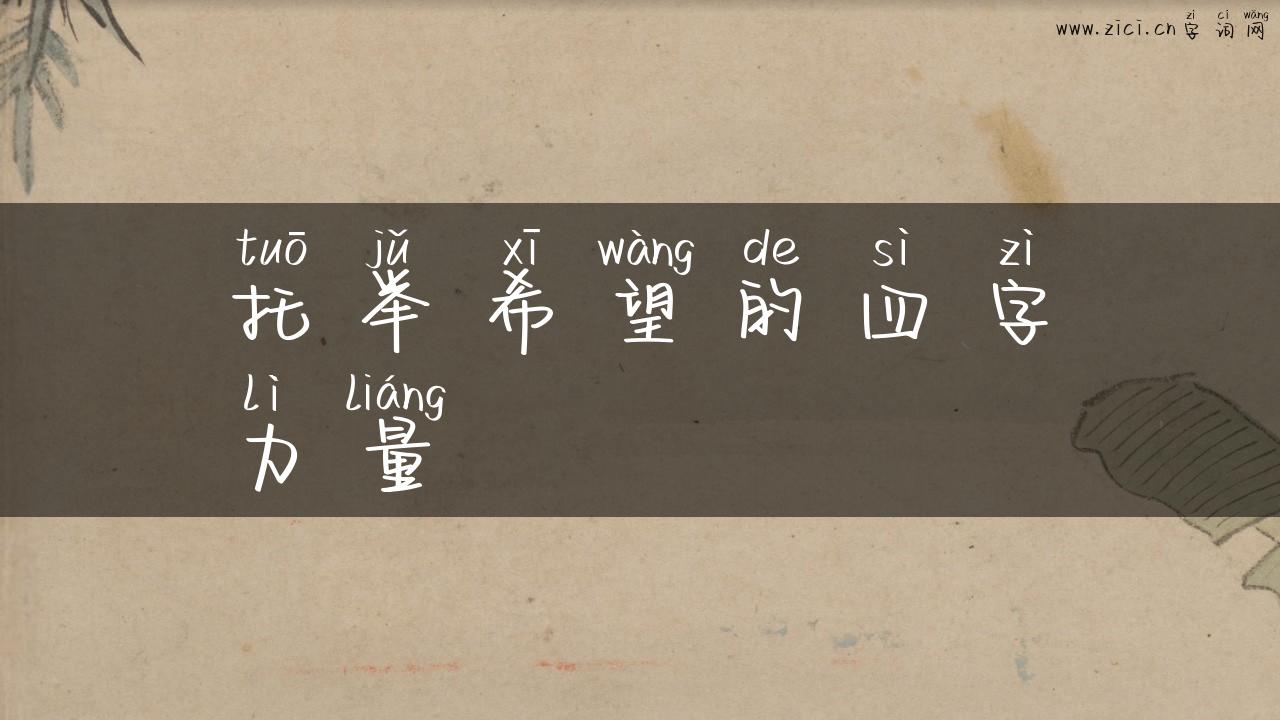 zì cí wǎng
www.zici.cn 字词网
tuō jǔ xī wàng de sì zì
托举希望的四字
lì liàng
力量